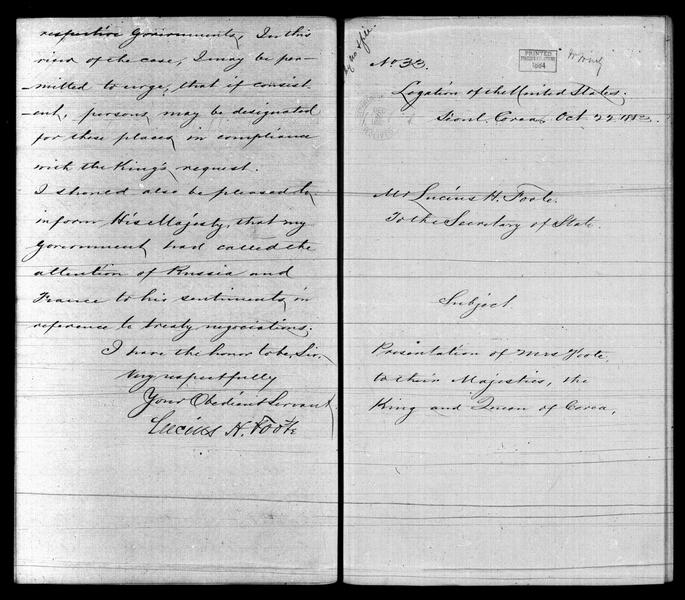 respective Governments, In this
view of the case, I may be per-
-mitted to urge, that if consist-
-ent, persons may be designated
for these places, in compliance
with the King's request.
I should also be pleased to
inform His Majesty, that my
Government, had called the
attention of Russia and
France to his sentiments, in
reference to treaty negociations.
I have the honor to be, Sir,
Very respectfully
Your Obedient Servant,
Lucius H. Foote
No 33.
PRINTED
1884
Legation of the United States.
Seoul, Corea, Oct 22 1883.
Mr Lucius H. Foote.
To the Secretary of State.
Subject
Presentation of Mrs Foote,
to their Majesties, the
King and Queen of Corea,